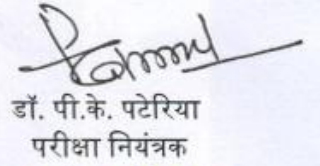 डॉ. पी.के. पटेरिया
परीक्षा नियंत्रक